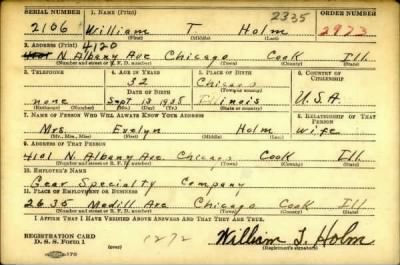 SERIAL NUMBER 1. NAME (Print) 2335 ORDER NUMBER
2106 William T Holm 2973
(First) (Middle) (Last)
2. ADDRESS (Print) 4120
4101 N Albany Ave Chicago Cook Ill.
(Number and street or R. F. D. number) (Town) (County) (State)
3. TELEPHONE 4. AGE IN YEARS 5. PLACE OF BIRTH 6. COUNTRY OF CITIZENSHIP
32 Chicago
DATE OF BIRTH (Town or county)
none Sept 13 1908 Illinois U.S.A.
(Exchange) (No.) (Mo.) (Day) (Yr.) (State or country)
7. NAME OF PERSON WHO WILL ALWAYS KNOW YOUR ADDRESS 8. RELATIONSHIP OF THAT PERSON
Mrs. Evelyn Holm wife
(Mr., Mrs., Miss) (First) (Middle) (Last)
9. ADDRESS OF THAT PERSON
4101 N Albany Ave. Chicago Cook Ill
(Number and street or R. F. D. number) (Town) (County) (State)
10. EMPLOYER'S NAME
Gear Specialty Company
11. PLACE OF EMPLOYMENT OR BUSINESS
2635 Medill Ave Chicago Cook Ill
(Number and street or R. F. D. number) (Town) (County) (State)
I AFFIRM THAT I HAVE VERIFIED ABOVE ANSWERS AND THAT THEY ARE TRUE.
REGISTRATION CARD
D. S. S. Form 1 (over) William T. Holm
(Registrant's signature)